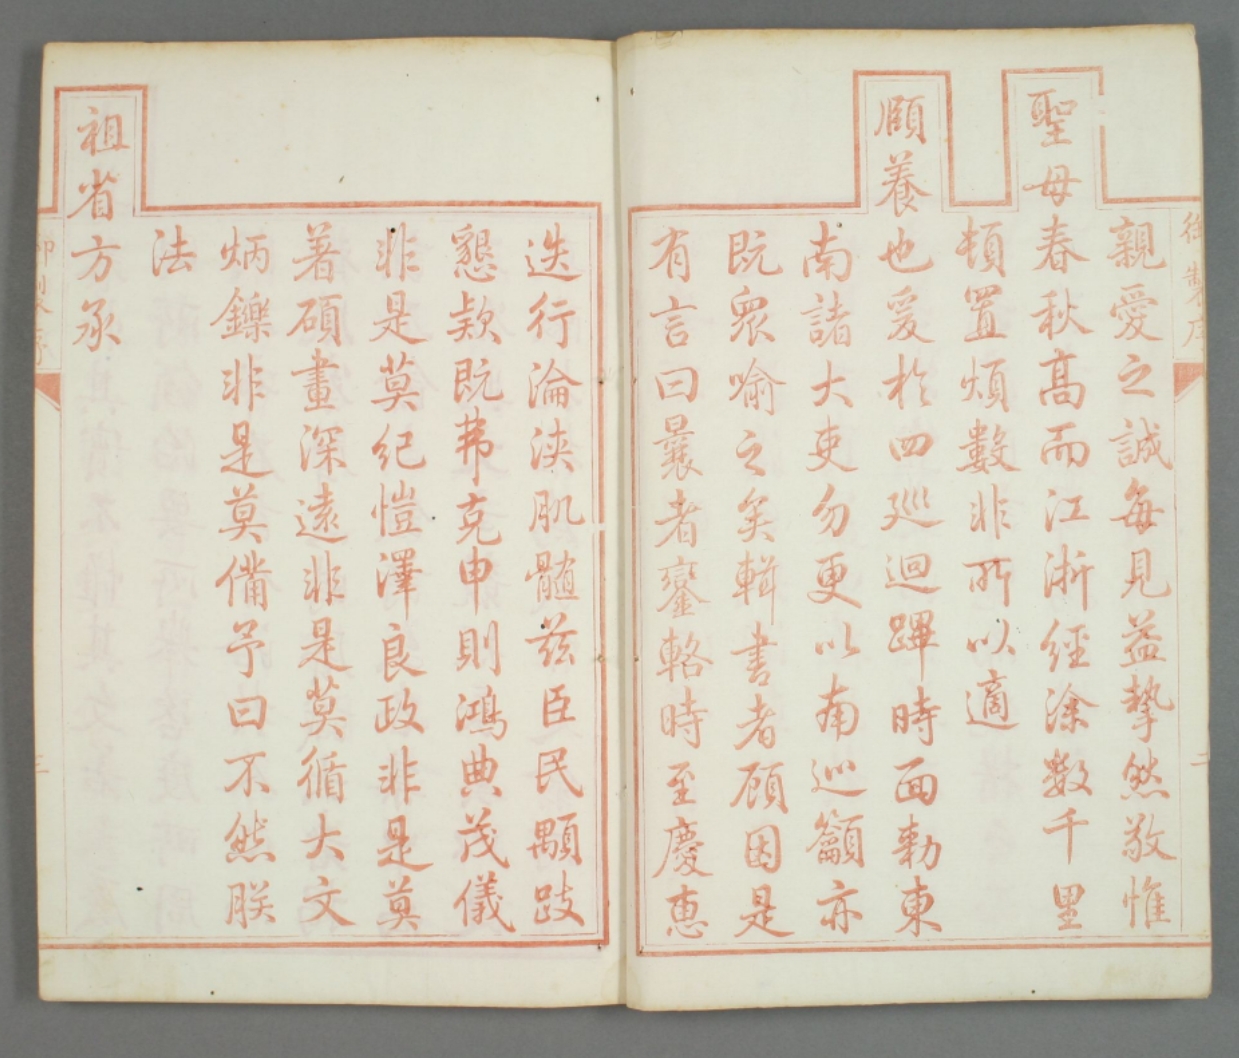 親愛之誠每見益摯然敬惟
聖母春秋高而江浙經涂數千里
頓置煩數非所以適
頤養也爰於四巡迴蹕時面勅東
南諸大吏勿更以南巡籲亦
既衆喻之矣輯書者顧因是
有言曰曩者鑾輅時至慶惠
迭行淪浹肌髓茲臣民顒跂
懇款既弗克申則鴻典茂儀
非是莫紀愷澤良政非是莫
著碩畫深遠非是莫循大文
炳鑠非是莫備予曰不然朕
法
祖省方承
御製序
二
御製序
三